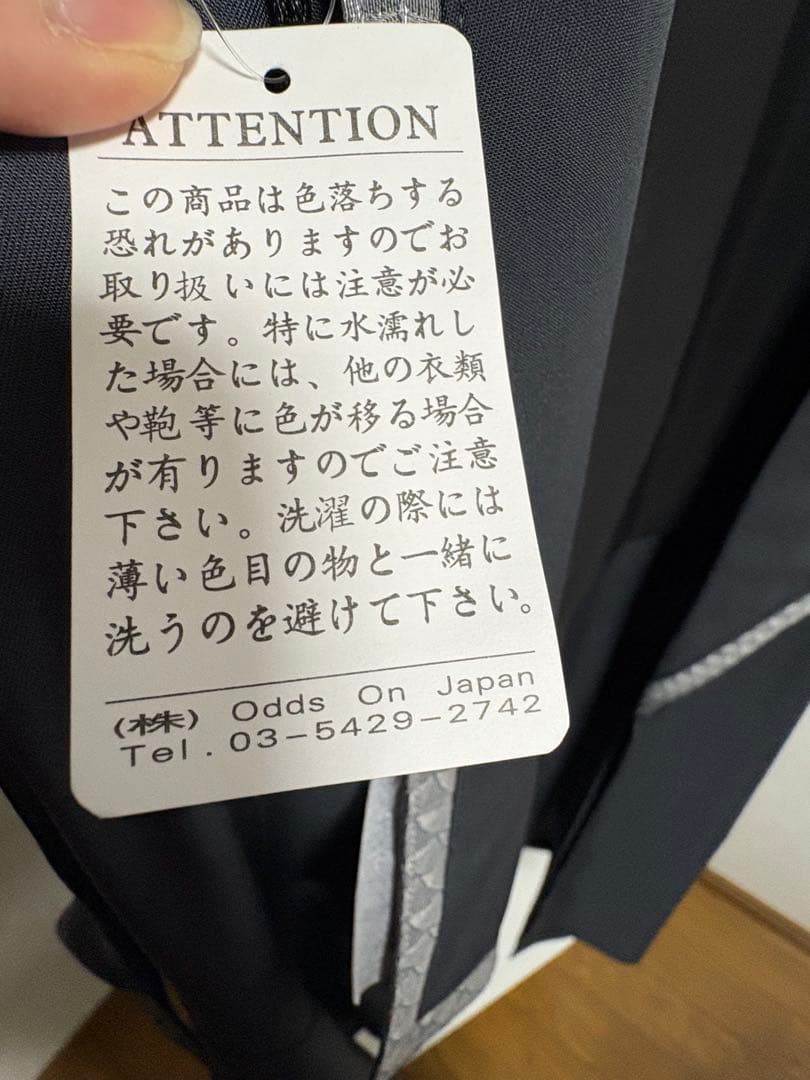 ATTENTION
この商品は色落ちする
恐れがありますのでお
取り扱いには注意が必
要です。特に水濡れし
た場合には、他の衣類
や鞄等に色が移る場合
が有りますのでご注意
下さい。洗濯の際には
薄い色目の物と一緒に
洗うのを避けて下さい。
(株) Odds On Japan
Tel.03-5429-2742